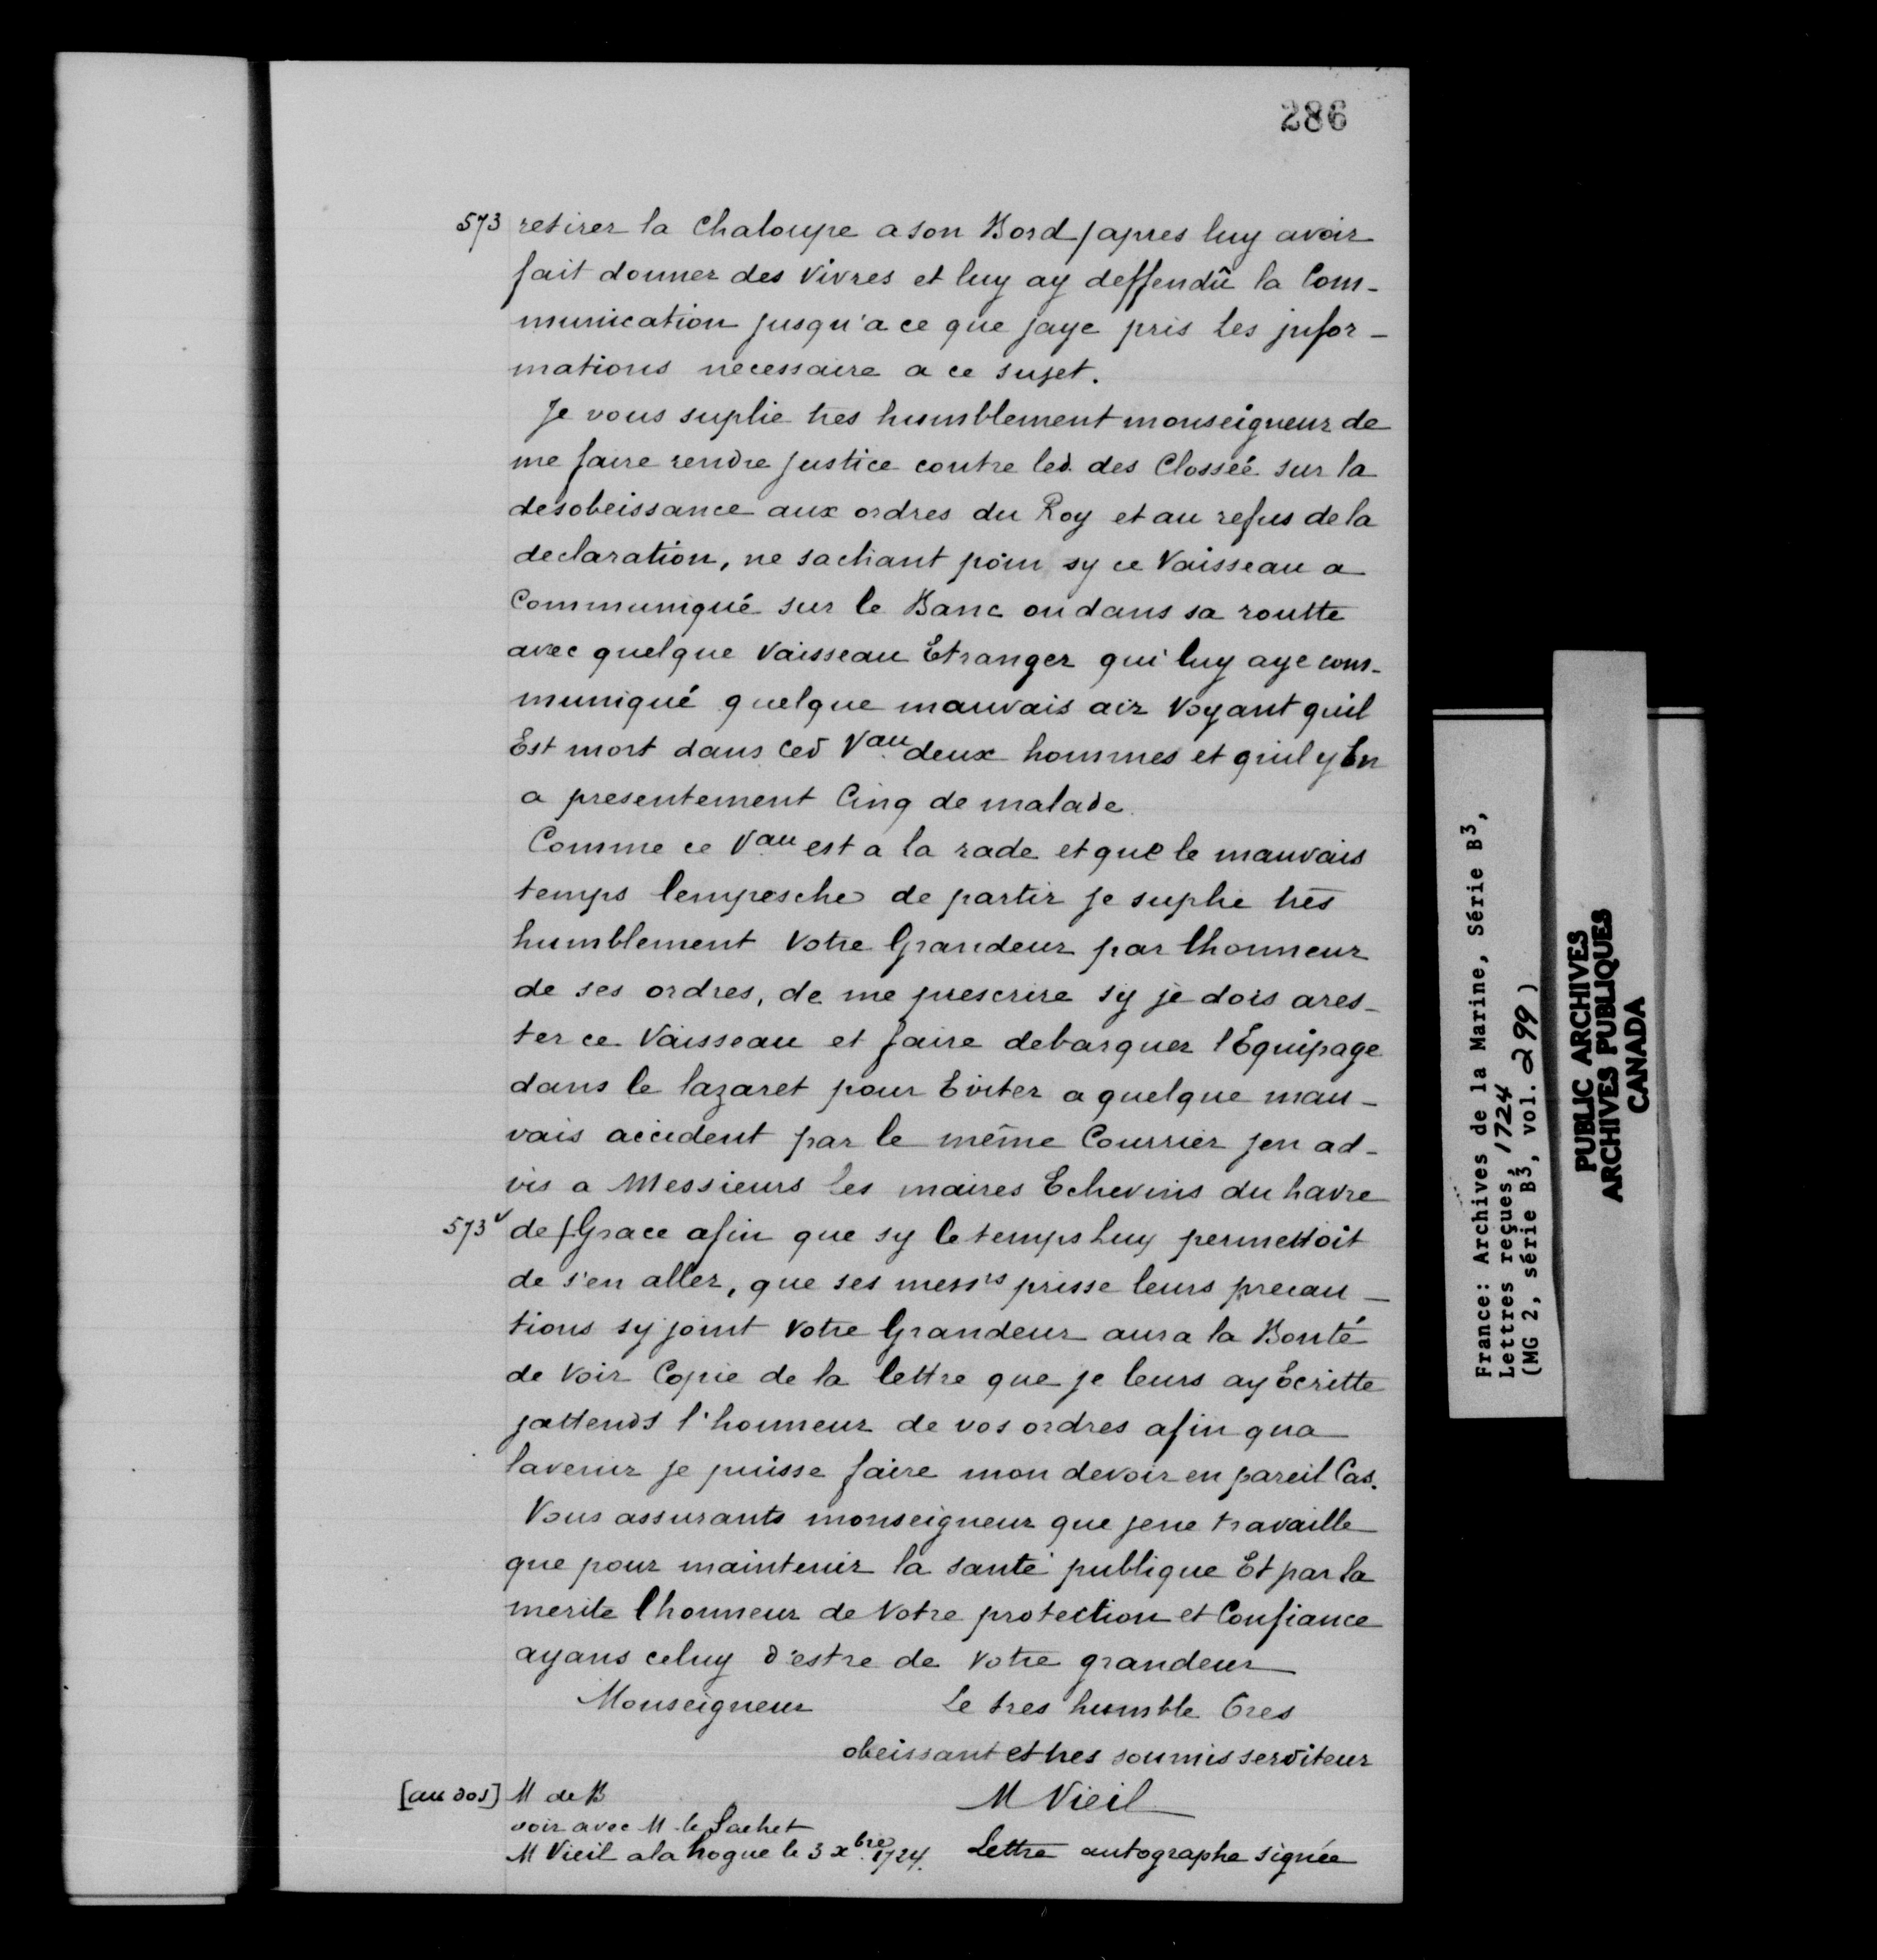 286
573 retirer la Chaloupe a son Bord/apres luy avoir
fait donner des Vivres et luy ay deffendû la Com-
munication jusqu'a ce que jaye pris les jnfor-
mations necessaire a ce sujet.
Je vous suplie tres humblement monseigneur de
me faire rendre justice contre led. des Clossée sur la
desobeissance aux ordres du Roy et au refus de la
declaration, ne sachant poin sy ce Vaisseau a
Communiqué sur le Banc ou dans sa routte
avec quelque Vaisseau Etranger qui luy aye com-
muniqué quelque mauvais air Voyant quil
Est mort dans Ced Vau deux hommes et quil y En
a presentement Cinq de malade.
Comme ce Vau est a la rade et que le mauvais
temps lempesche de partir je suplie très
humblement Votre Grandeur par lhonneur
de ses ordres, de me prescrire sy je dois ares-
ter ce Vaisseau et faire debarquer l'Equipage
dans le lazaret pour Eviter a quelque mau-
vais accident par le même Courrier jen ad-
vis a Messieurs les maires Echevins du havre
573v de/Grace afin que sy le temps Luy permettoit
de s'en aller, que ses messrs prisse leurs precau-
tions sy joint Votre Grandeur aura la Bonté
de Voir Copie de la lettre que je leurs ay Ecritte
jattends l'honneur de vos ordres afin qua
lavenir je puisse faire mon devoir en pareil Cas.
Vous assurants monseigneur que jene travaille
que pour maintenir la santé publique Et par la
merite lhonneur de Votre protection et Confiance
ayans celuy d'estre de Votre grandeur
Monseigneur Le tres humble tres
obeissant et tres soumis serviteur
[au dos] M de B M Vieil
voir avec M. le Sachet
M Vieil ala hogue le 3 xbre 1724. Lettre autographe signée
France: Archives de la Marine, Série B3,
Lettres reçues, 1724
(MG 2, série B3, vol. 299)
PUBLIC ARCHIVES
ARCHIVES PUBLIQUES
CANADA